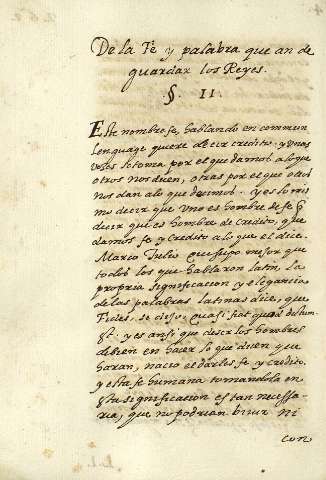 De la Fè y palabra que an de
guardar los Reyes.
§. II.
Este nombre fe, hablando en commun
lenguage quiere decir credito. y unas
veses se toma por el que damos a lo que
otros nos dicen, otras por el que otros
nos dan a lo que decimos. y es lo mis
mo decir que uno es hombre de fe q̃
decir que es hombre de credito, que
damos fe y credito a lo que el dice.
Marco Tulio que supo mejor que
todos los que hablaron latin, la
propria significacion y elegancia
de las palabras latinas dice, que
Fides, se dijo, quasi fiat quod dictum
est. y es ansi que de ser los hombres
en hacer lo que dicen que
haran, nacio el darles fe y credito.
y esta fe humana tomandola en
esta significacion es tan necessa
ria, que no podrian bivir ni
con